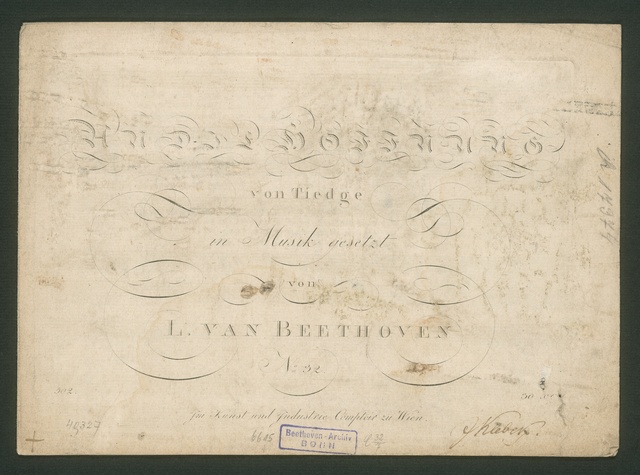 AN DIE HOFFNUNG
von Tiedge
in Musik gesetzt
von
L. VAN BEETHOVEN
No 32
502
30 xr
Im Kunst und Industrie-Comptoir zu Wien.
Beethoven-Archiv
BONN